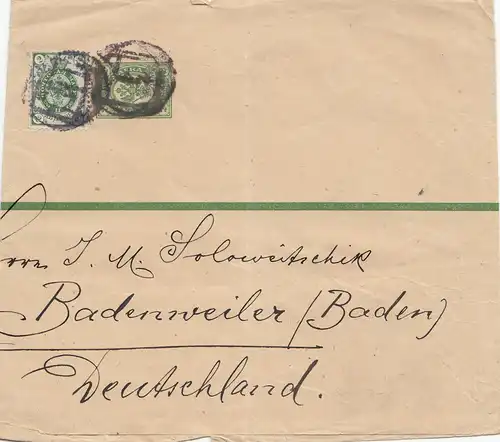 Herrn J. M. Soloweitschik
Badenweiler (Baden)
Deutschland.